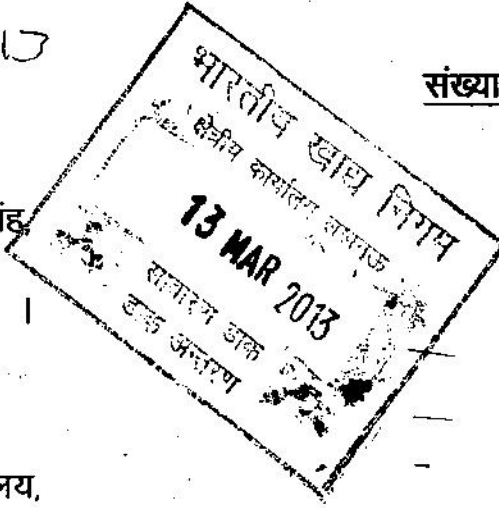 संख्या
भारतीय खाद्य निगम
क्षेत्रीय कार्यालय लखनऊ
13 MAR 2013
साधारण डाक
डाक अन्तरण
ंह
।
लय,